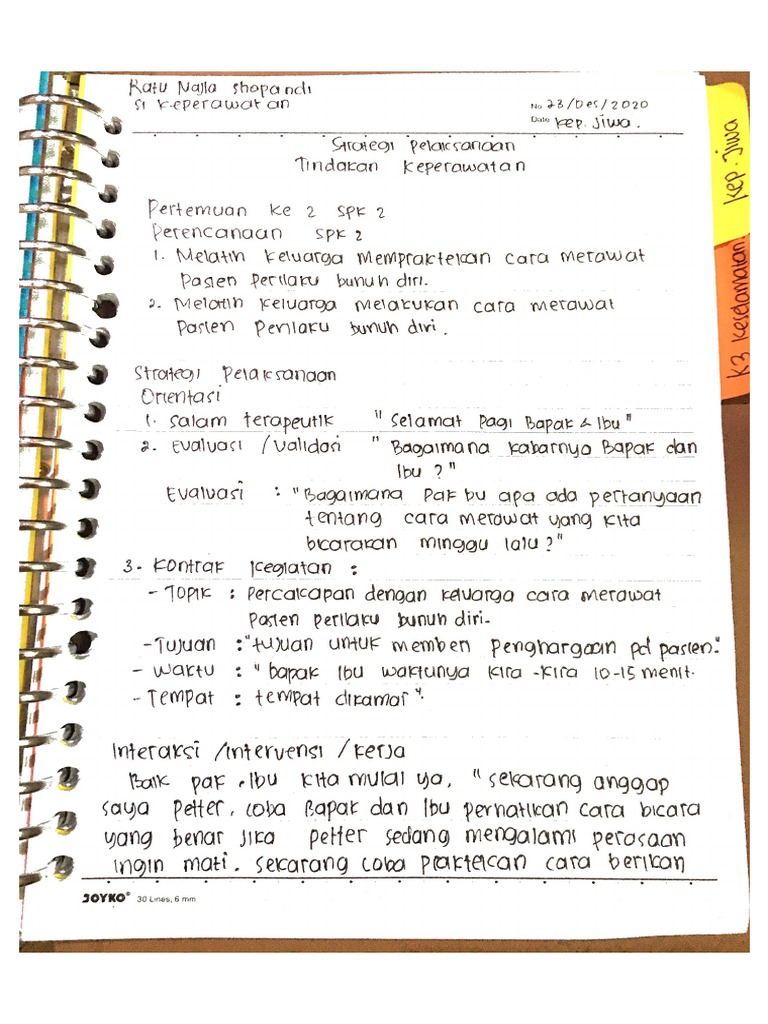 Ratu Najla Shopandi
S1 Keperawatan
No 23/Des/2020
Date Kep. Jiwa.
Strategi Pelaksanaan
Tindakan Keperawatan
Pertemuan Ke 2 SPK 2
Perencanaan SPK 2
1. Melatih Keluarga Mempraktekan cara merawat
Pasien Perilaku bunuh diri.
2. Melatih Keluarga Melakukan cara merawat
Pasien Perilaku bunuh diri.
Strategi Pelaksanaan
Orientasi
1. Salam terapeutik "Selamat Pagi Bapak & Ibu"
2. Evaluasi /Validasi "Bagaimana kabarnya Bapak dan
Ibu ?"
Evaluasi : "Bagaimana Pak bu apa ada pertanyaan
tentang cara merawat yang kita
bicarakan minggu lalu?"
3. Kontrak Kegiatan :
- Topik : Percakapan dengan keluarga cara merawat
Pasien perilaku bunuh diri.
- Tujuan : "tujuan untuk memberi penghargaan pd pasien."
- Waktu : "bapak Ibu waktunya kira-kira 10-15 menit.
- Tempat : tempat dikamar".
Interaksi /intervensi / Kerja
Baik pak, Ibu kita mulai ya, "sekarang anggap
saya Petter, coba Bapak dan Ibu perhatikan cara bicara
yang benar jika petter sedang mengalami perasaan
ingin mati. sekarang coba praktekan cara berikan
JOYKO® 30 Lines, 6 mm
Kep. Jiwa
K3 Keselamatan